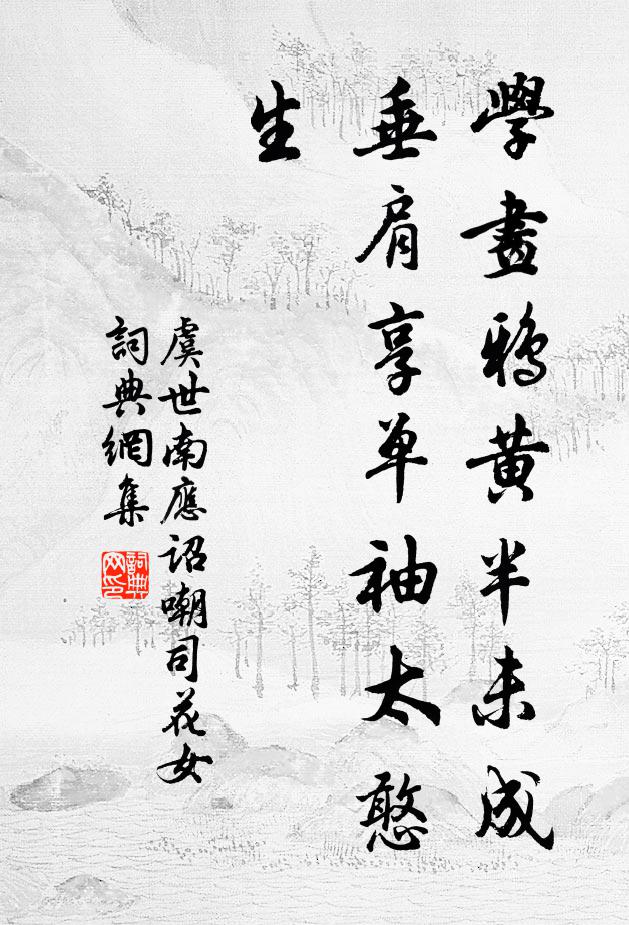 學畫鴉黄半未成
垂肩享单袖太憨
生
虞世南應詔嘲司花女
詞典網集
詞典
网印